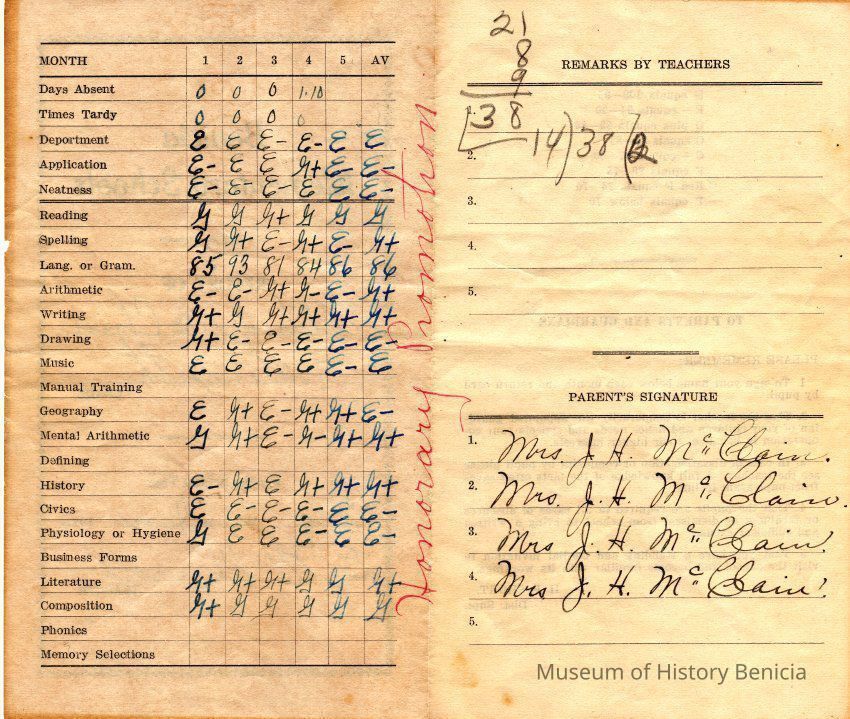 MONTH 1 2 3 4 5 AV
Days Absent 0 0 0 1.10
Times Tardy 0 0 0 0
Deportment E E E- E- E E
Application E- E E G+ E- E-
Neatness E- E- E- E E- E-
Reading G G G+ G G G
Spelling G G+ E- G+ E- G+
Lang. or Gram. 85 93 81 84 86 86
Arithmetic E- E- G+ G- E- G+
Writing G+ G G+ G+ G+ G+
Drawing G+ E- E- E- E- E-
Music E E E E E- E
Manual Training
Geography E G+ E- G+ G+ E-
Mental Arithmetic G G+ E- G- G+ G+
Defining
History E- G+ E G+ G+ G+
Civics E E- E- E- E- E-
Physiology or Hygiene G E E E- E E-
Business Forms
Literature G+ G+ G+ G G G+
Composition G+ G G G G G
Phonics
Memory Selections
Honorary Promotion.
21
8
9
38
14)38(2
REMARKS BY TEACHERS
1.
2.
3.
4.
5.
PARENT'S SIGNATURE
1. Mrs. J. H. McClain.
2. Mrs. J. H. McClain.
3. Mrs J. H. McClain.
4. Mrs J. H. McClain.
5.
Museum of History Benicia